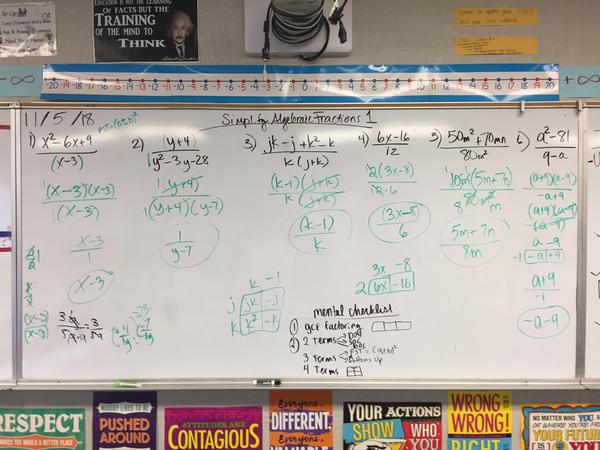 EDUCATION IS NOT THE LEARNING
OF FACTS BUT THE
TRAINING
OF THE MIND TO
THINK
-∞ -20 -19 -18 -17 -16 -15 -14 -13 -12 -11 -10 -9 -8 -7 -6 -5 -4 -3 -2 -1 0 1 2 3 4 5 6 7 8 9 10 11 12 13 14 15 16 17 18 19 20 +∞
11/5/18
Simplify Algebraic Fractions 1
PST=(a±b)²
1) x²-6x+9
(x-3)
(x-3)(x-3)
1(x-3)
x-3
1
x-3
2) (y+4)
1y²-3y-28
1(y+4)
1(y+4)(y-7)
1
y-7
3) jk-j+k²-k
k(j+k)
(k-1)(j+k)
k(j+k)
(k-1)
k
k -1
j jk -j
k k² -k
4) 6x-16
12
2(3x-8)
2·6
(3x-8)
6
3x -8
2 6x -16
5) 50m²+70mn
80m²
10m(5m+7n)
5m+7n
8m
6) a²-81
9-a
(a+9)(a-9)
-a+9
(a+9)(a-9)
-(a-9)
a-9
-1 -a+9
a+9
-1
-a-9
mental checklist
1 gcf factoring
2 2 terms
3 Terms PST=(a±b)²
bottoms up
4 Terms
RESPECT
MAKES THE WORLD A BETTER PLACE
NOBODY LIKES TO BE
PUSHED
AROUND
ATTITUDES ARE
CONTAGIOUS
Everyone is
DIFFERENT
Everyone is
YOUR ACTIONS
SHOW WHO
YOU
WRONG
WRONG!
RIGHT
NO MATTER WHO YOU
YOUR FUTURE